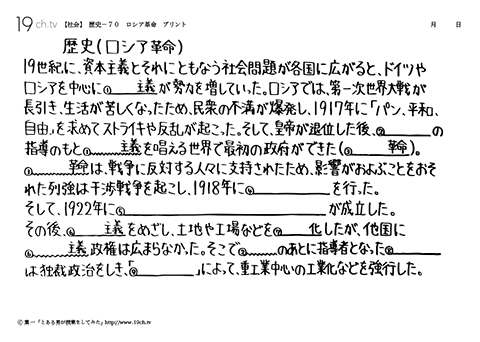 19ch.tv 【社会】 歴史-70 ロシア革命 プリント 月 日
歴史(ロシア革命)
19世紀に、資本主義とそれにともなう社会問題が各国に広がると、ドイツや
ロシアを中心に 主義が勢力を増していった。ロシアでは、第一次世界大戦が
長引き、生活が苦しくなったため、民衆の不満が爆発し、1917年に「パン、平和、
自由」を求めてストライキや反乱が起こった。そして、皇帝が退位した後、 の
指導のもと 主義を唱える世界で最初の政府ができた( 革命)。
革命は、戦争に反対する人々に支持されたため、影響がおよぶことをおそ
れた列強は干渉戦争を起こし、1918年に を行った。
そして、1922年に が成立した。
その後、 主義をめざし、土地や工場などを 化したが、他国に
主義政権は広まらなかった。そこで のあとに指導者となった
は独裁政治をしき、「 」によって、重工業中心の工業化などを強行した。
© 葉一「とある男が授業をしてみた」http://www.19ch.tv